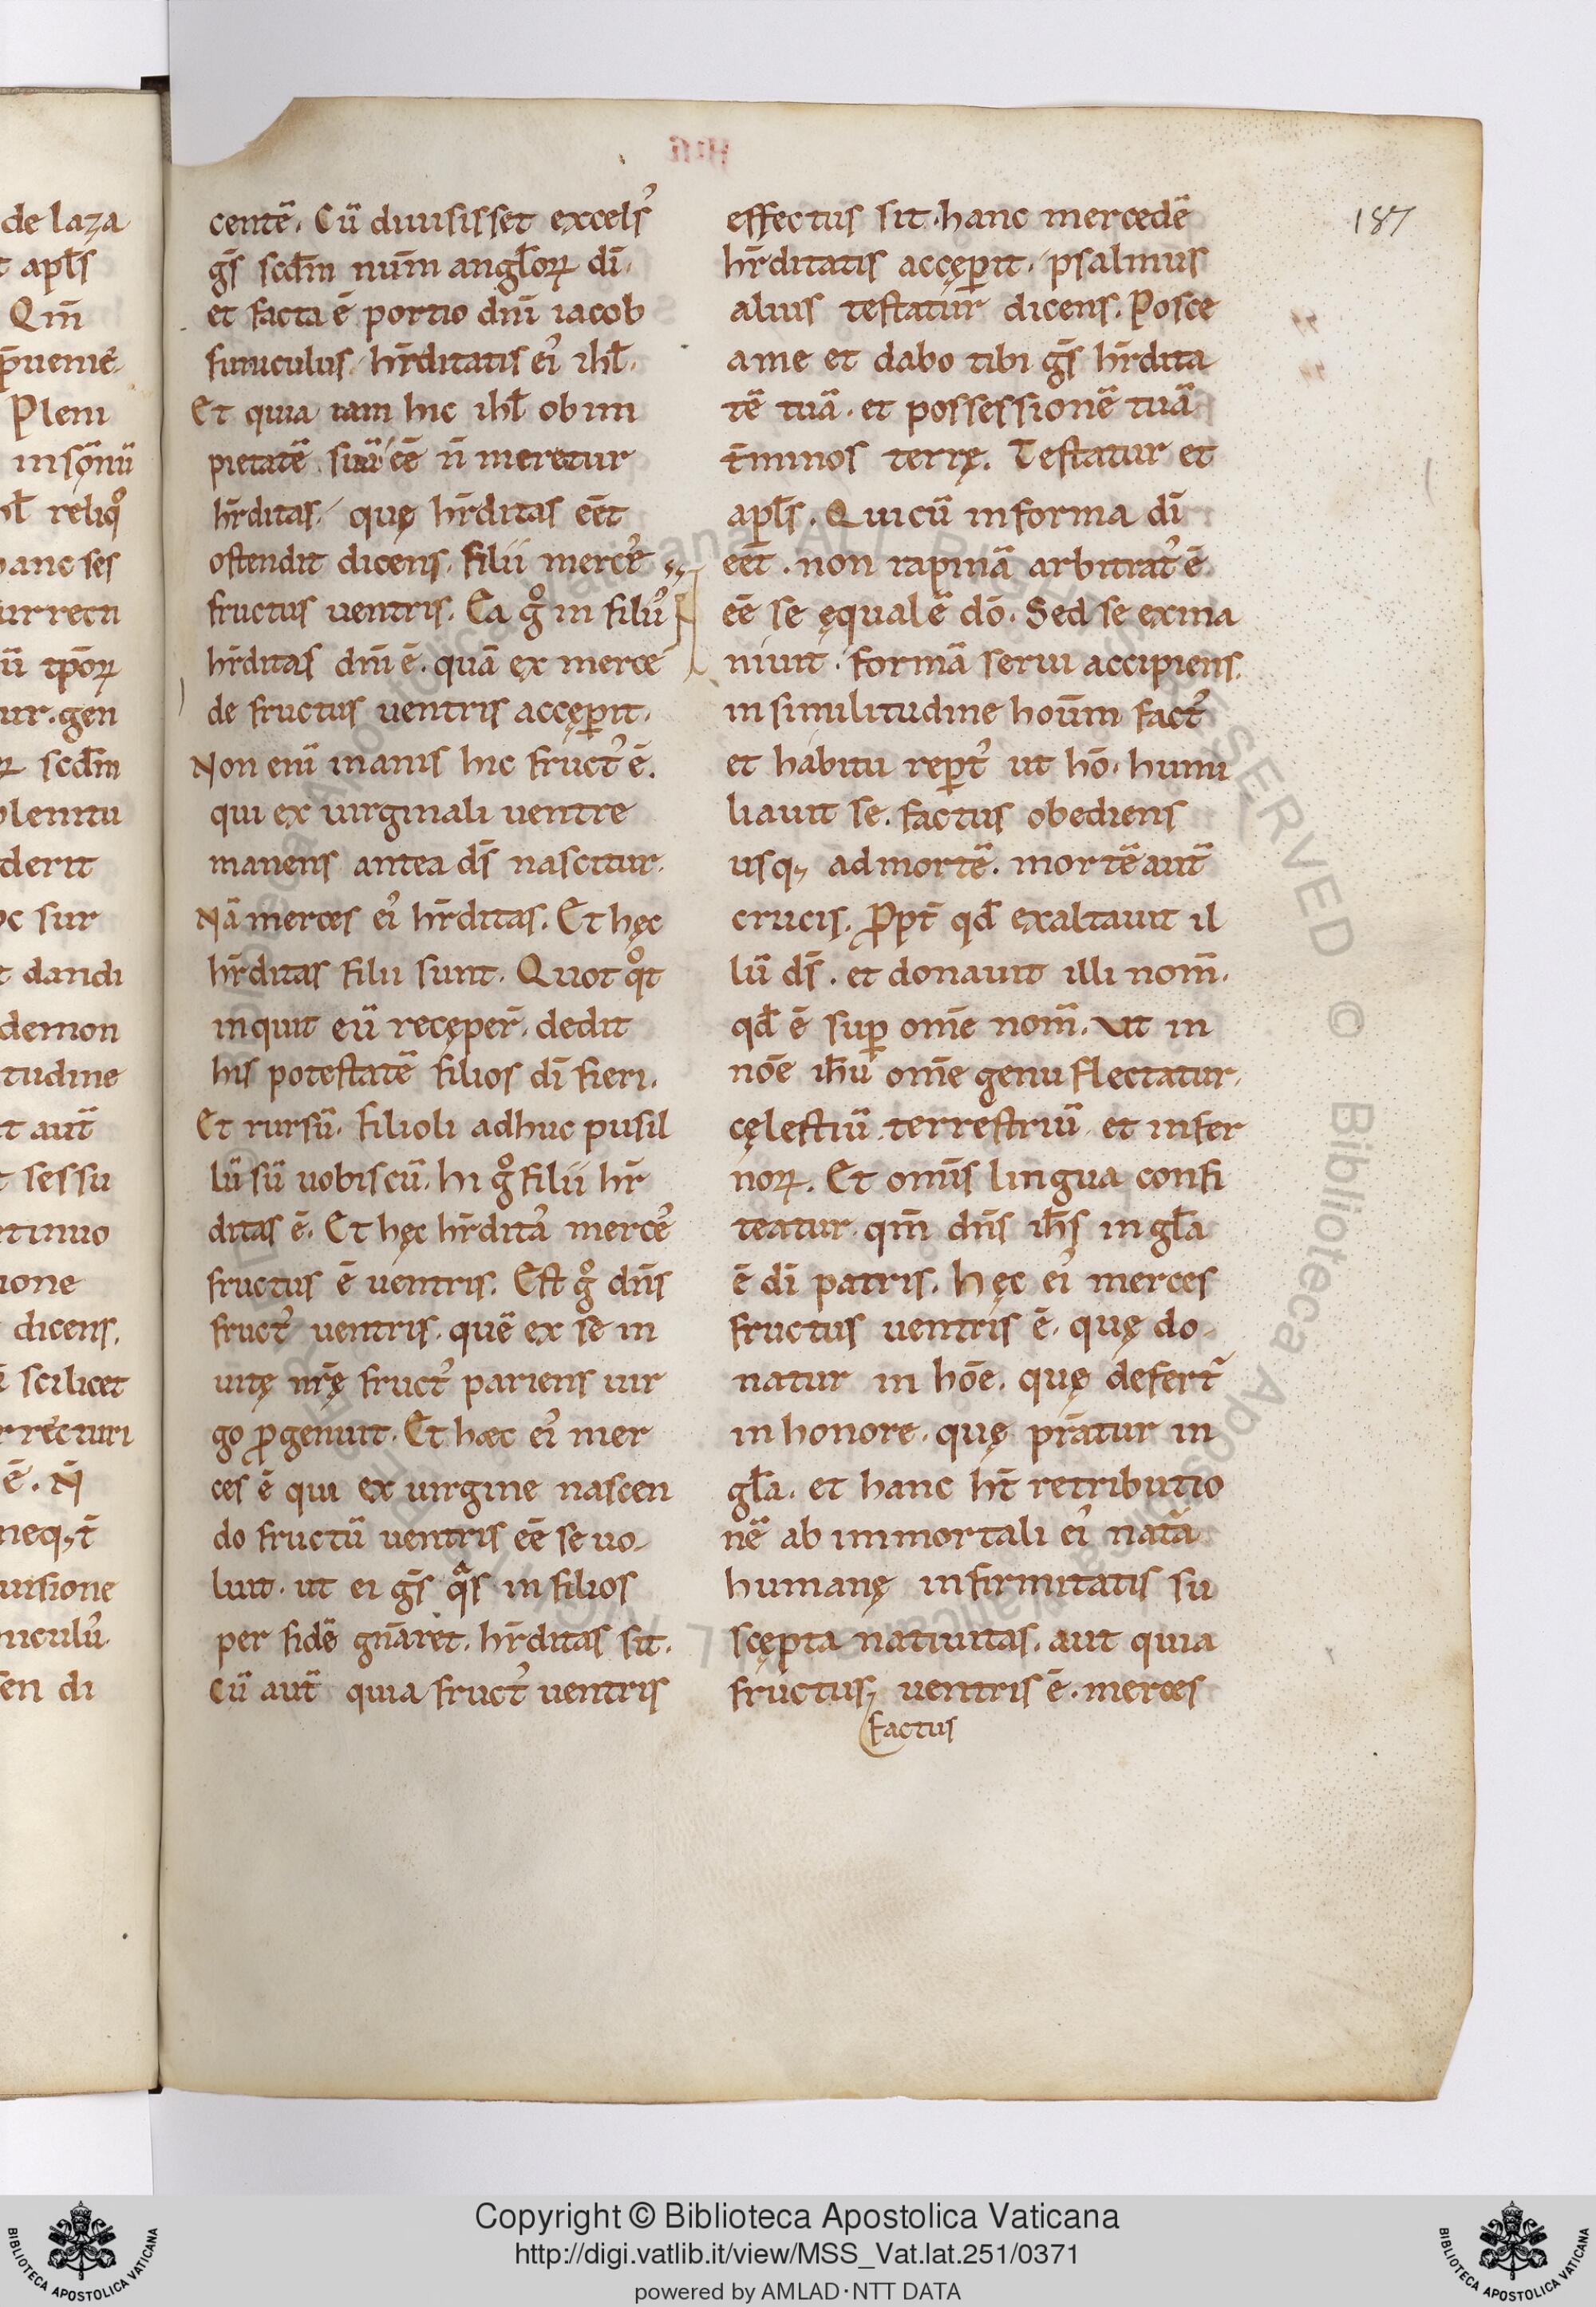 de laza
apl̄s
Qm̄
p̄ueniē
Pleni
reliq°
anc ses
urrectı
tp̄oꝝ
ur. gen
scd̄m
plenitu
derit
oc sur
dandi
demon
tudine
t aut̄
sessu
tinuo
ione
dicens.
scilicet
recturi
ē. N̄
neq; t̄
uisione
niculu᾽
en di
centē. Cū diuisisset excels᾽
gs̄ scd̄m num̄ angl̄oꝝ dī.
et facta ē portio dnī iacob
funiculus hr̄ditatis ei᾽ ihl̄.
Et quia iam hic ihl̄ ob im
pietatē suā eē n̄ meretur
hr̄ditas. quę hr̄ditas eēt
ostendit dicens. filii merce᾽s
fructus uentris. Ea g° in filiu᾽
hr̄ditas dnī ē. quā ex merce
de fructus uentris accęꝑit.
Non enī inanis hic fruct᾽ ē.
qui ex uirginali uentre
manens antea ds̄ nascitur.
Nā merces ei᾽ hr̄ditas. Et hęc
hr̄ditas filii sunt. Quotq°t
inquit eū recęper̄. dedit
his potestatē filios dī fieri.
Et rursū. filioli adhuc pusil
lū sū uobiscū. hi g° filii hr̄
ditas ē. Et hęc hr̄dita᾽ merce᾽
fructus ē uentris. Est g° dn̄s
fruct᾽ uentris. quē ex se in
uitę nr̄ę fruct᾽ pariens uir
go ꝓgenuit. Et hæc ei᾽ mer
ces ē qui ex uirgine nascen
do fructū uentris eē se uo
luit. ut ei gs̄ qᵃs in filios
per fidē gnāret. hr̄ditas sit.
Cū aut̄ quia fruct᾽ uentris
effectus sit. hanc mercedē
hr̄ditatis accęꝑit. psalmus
alius testatur̄ dicens. Posce
a me et dabo tibi gs̄ hr̄dita
tē tuā. et possessionē tuā
t̄minos terrę. Testatur et
apl̄s. Qui cū in forma dī
eēt. non rapinā arbitrat᾽ ē
eē se ęqualē dō. Sed se exina
niuit. formā serui accipiens.
in similitudine hoūm fact᾽
et habitu repert᾽ ut hō. humi
liauit se. factus obediens
usq; ad mortē. mortē aut̄
crucis. Ꝓpt̄ qd̄ exaltauit il
lū ds̄. et donauit illi nom̄.
qd̄ ē suꝑ om̄e nom̄. Ut in
nōe ih̄u om̄e genu flectatur.
cęlestiū terrestriū et infer
noꝝ. Et om̄is lingua confi
teatur qm̄ dn̄s ih̄s in gl̄a
ē dī patris. Hęc ei᾽ merces
fructus uentris ē. quę do
natur in hōe. quę defert᾽
in honore. quę pr̄atur in
gl̄a. et hanc ht̄ retributio
nē ab immortali ei᾽ natā
humanę infirmitatis su
scępta natiuitas. aut quia
fructus, uentris ē. merces
factus
187
Copyright © Biblioteca Apostolica Vaticana
http://digi.vatlib.it/view/MSS_Vat.lat.251/0371
powered by AMLAD·NTT DATA
BIBLIOTECA APOSTOLICA VATICANA
BIBLIOTECA APOSTOLICA VATICANA